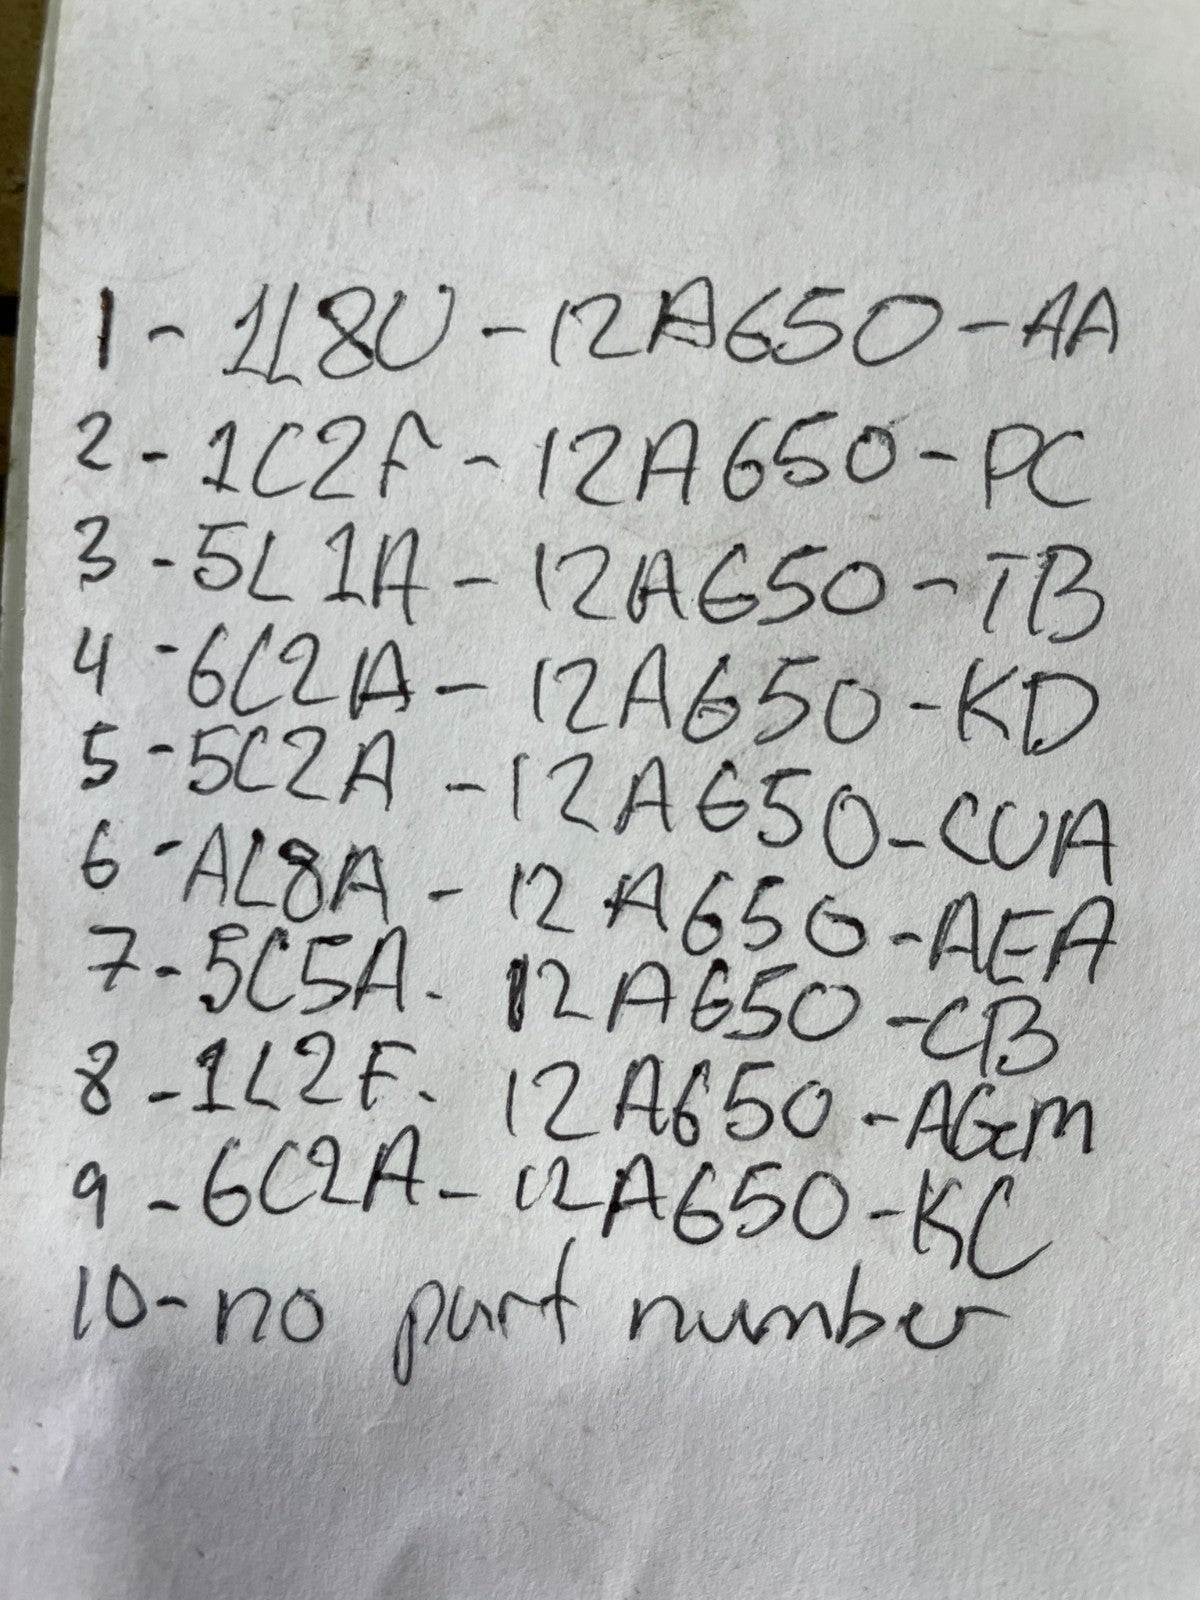 1 - 1L8U - 12A650 - AA
2 - 1C2F - 12A650 - PC
3 - 5L1A - 12A650 - TB
4 - 6C2A - 12A650 - KD
5 - 5C2A - 12A650 - CUA
6 - AL8A - 12A650 - AEA
7 - 5C5A - 12A650 - CB
8 - 1L2F - 12A650 - AGM
9 - 6C2A - 12A650 - KC
10 - no part number